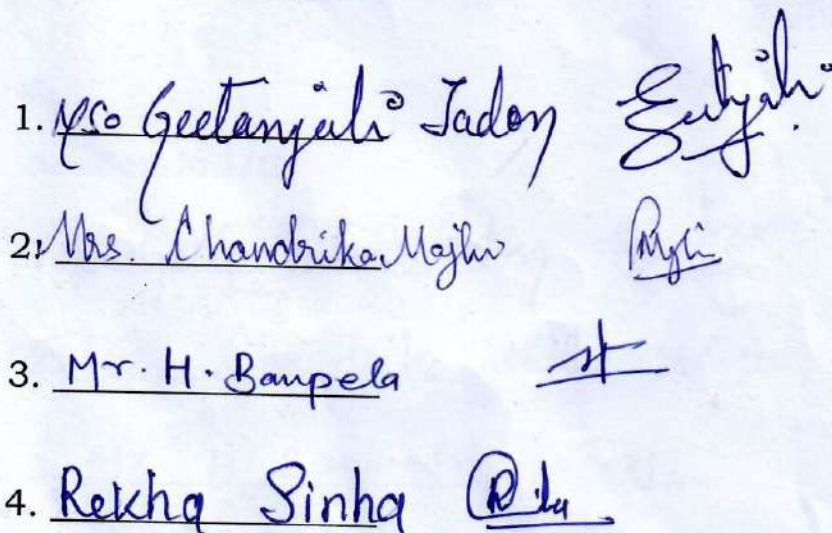 1. Ms. Geetanjali Jadon Geetanjali
2. Mrs. Chandrika Majhi
3. Mr. H. Banpela
4. Rekha Sinha